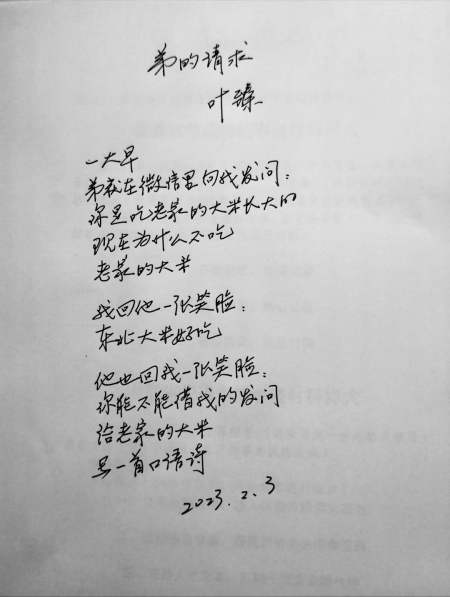 弟的请求
叶臻
一大早
弟就在微信里向我发问：
你是吃老家的大米长大的
现在为什么不吃
老家的大米
我回他一张笑脸：
东北大米好吃
他也回我一张笑脸：
你能不能借我的发问
给老家的大米
写一首口语诗
2023.2.3